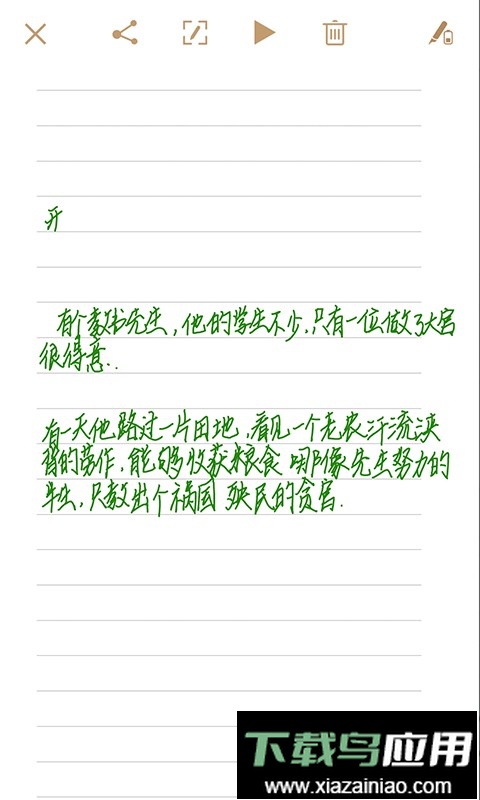 开
有个教书先生，他的学生不少，只有一位做了大官
很得意..
有一天他路过一片田地，看见一个老农汗流浃
背的劳作，能够收获粮食 哪像先生努力的
半生，只教出个祸国 殃民的贪官.
下载鸟应用
www.xiazainiao.com